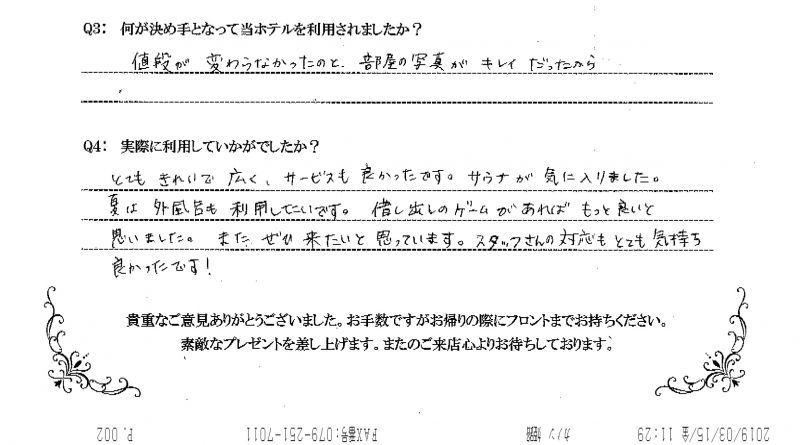 Q3： 何が決め手となって当ホテルを利用されましたか？
値段が 変わらなかったのと、部屋の写真が キレイ だったから
Q4： 実際に利用していかがでしたか？
とても きれいで 広く、サービスも 良かったです。サウナが 気に入りました。
夏は 外風呂も 利用したいです。 借し出しのゲームがあれば もっと良いと
思いました。 また ぜひ 来たいと 思っています。スタッフさんの対応もとても 気持ち
良かったです！
貴重なご意見ありがとうございました。お手数ですがお帰りの際にフロントまでお持ちください。
素敵なプレゼントを差し上げます。またのご来店心よりお待ちしております。
2019/03/15/金 11:29 カノン 姫路 FAX番号:079-251-7011 P. 002